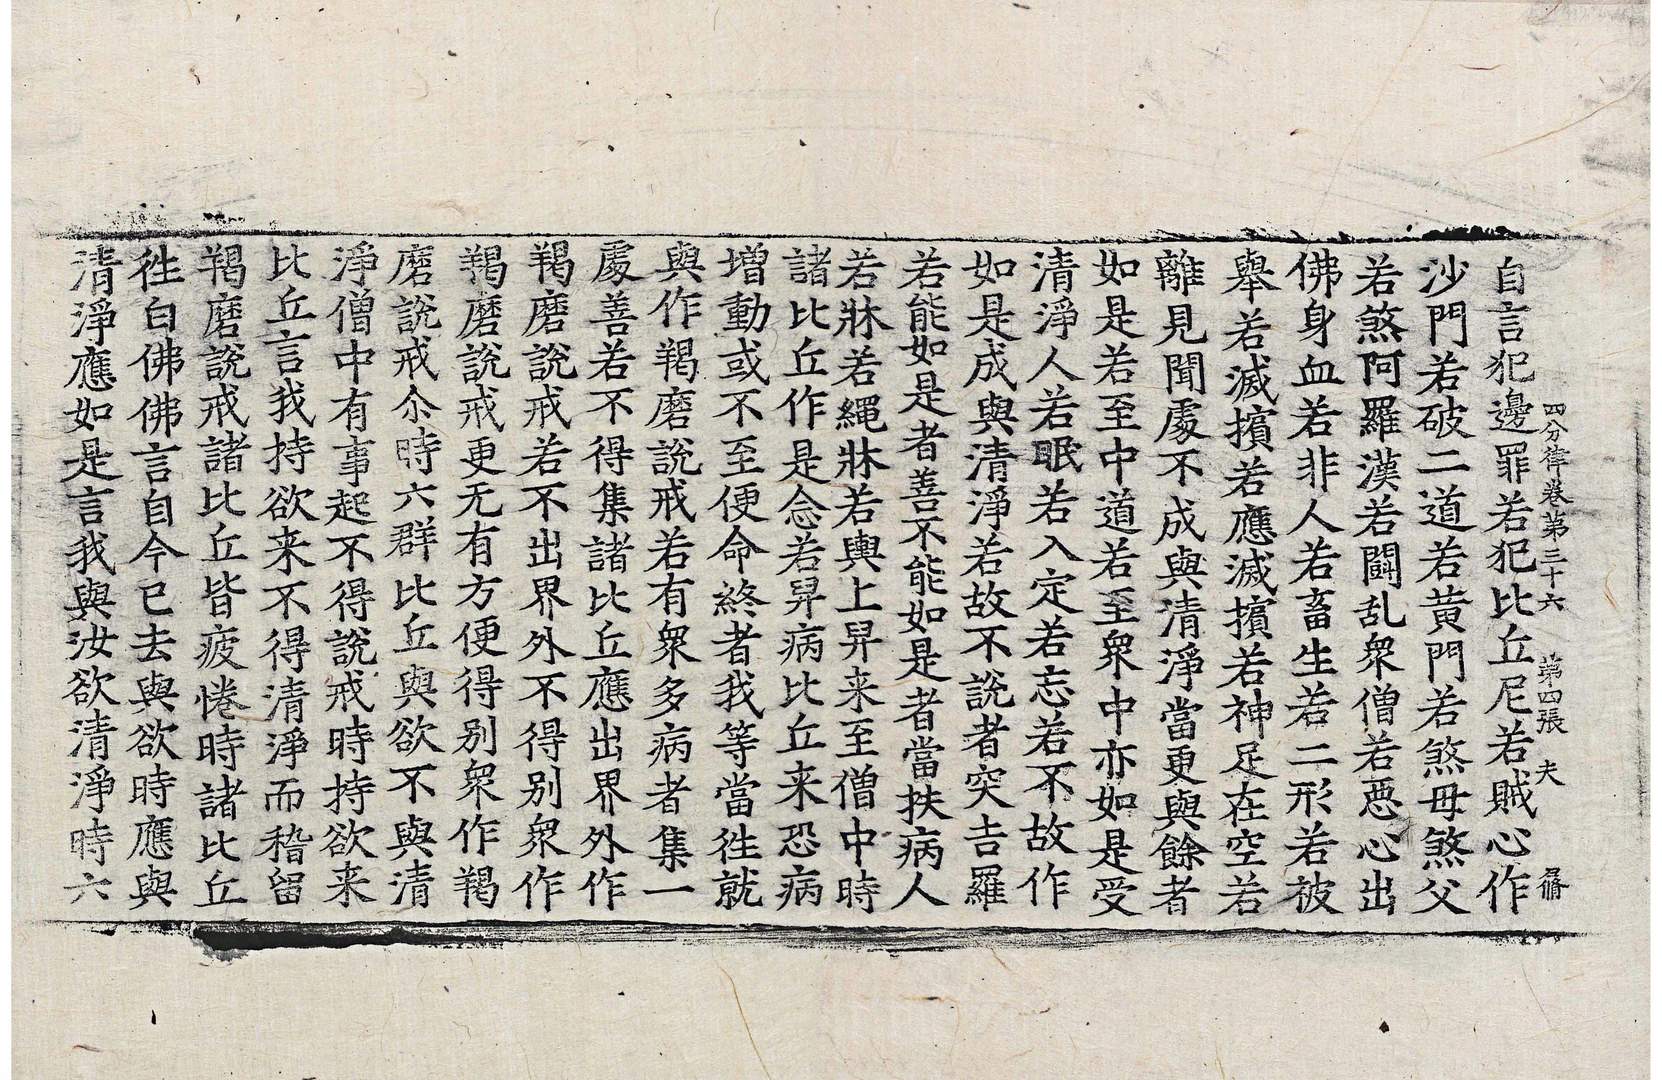 四分律卷第三十六 第四張 夫
自言犯邊罪若犯比丘尼若賊心作
沙門若破二道若黄門若煞母煞父
若煞阿羅漢若鬪乱衆僧若惡心出
佛身血若非人若畜生若二形若被
舉若滅擯若應滅擯若神足在空若
離見聞處不成與清淨當更與餘者
如是若至中道若至衆中亦如是受
清淨人若眠若入定若忘若不故作
如是成與清淨若故不説者突吉羅
若能如是者善不能如是者當扶病人
若牀若繩牀若輿上舁来至僧中時
諸比丘作是念若舁病比丘来恐病
増動或不至便命終者我等當徃就
與作羯磨說戒若有衆多病者集一
處善若不得集諸比丘應出界外作
羯磨說戒若不出界外不得别衆作
羯磨說戒更无有方便得别衆作羯
磨說戒尒時六群比丘與欲不與清
淨僧中有事起不得說戒時持欲来
比丘言我持欲来不得清淨而稽留
羯磨說戒諸比丘皆疲惓時諸比丘
徃白佛佛言自今已去與欲時應與
清淨應如是言我與汝欲清淨時六